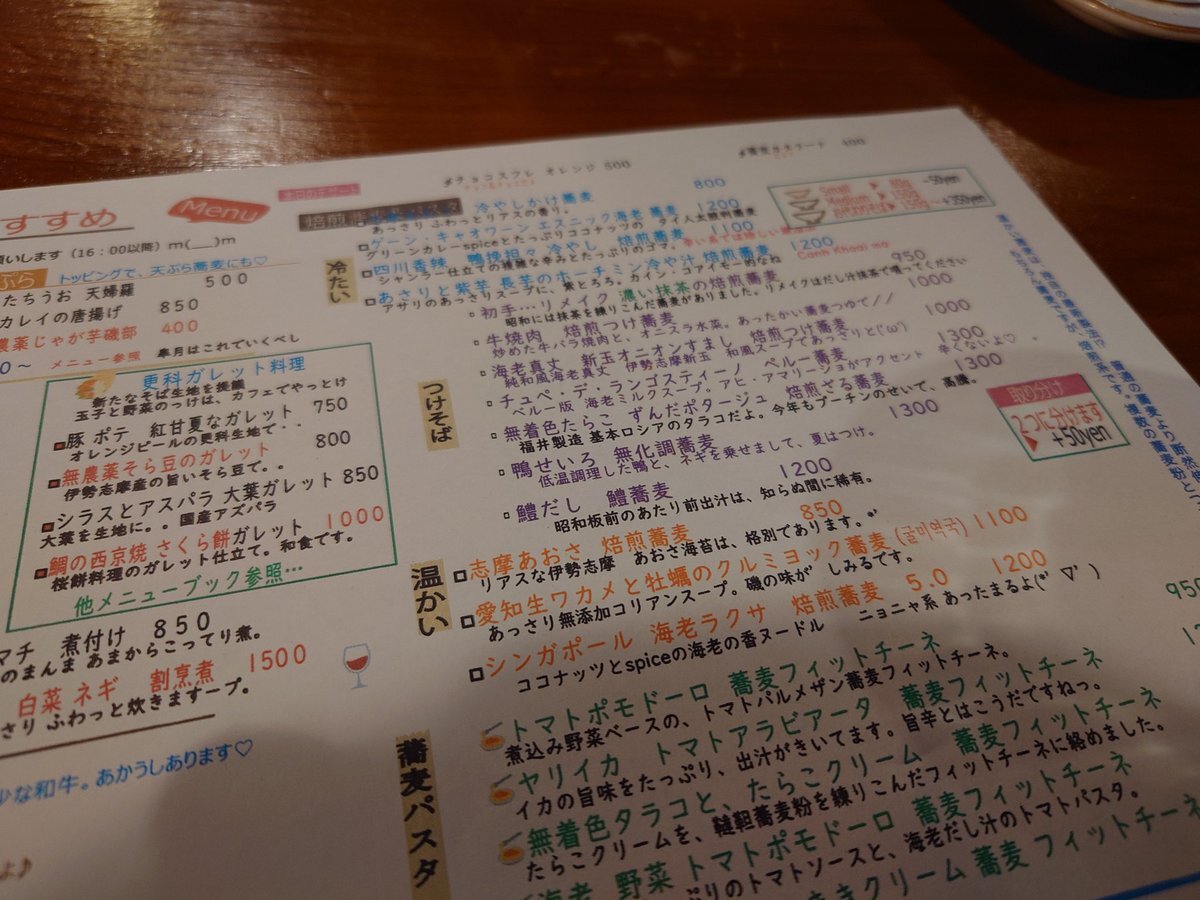 チョコスフレ オレンジ 500
400
すすめ
Menu
願いします（16：00以降）m(__)m
トッピングで、天ぷら蕎麦にも♡
たちうお 天婦羅 500
カレイの唐揚げ 850
農薬じゃが芋磯部 400
メニュー参照 皐月はこれでいくべし
更科ガレット料理
新たなそば生地を提議
玉子と野菜のっけは、カフェでやっとけ
豚 ポテ 紅甘夏なガレット 750
オレンジピールの更科生地で・・
無農薬そら豆のガレット 800
伊勢志摩産の旨いそら豆で。。
シラスとアスパラ 大葉ガレット 850
大葉を生地に。。国産アズパラ
鯛の西京焼 さくら餅ガレット 1000
桜餅料理のガレット仕立て。和食です。
他メニューブック参照…
マチ 煮付け 850
のまんま あまからこってり煮。
白菜 ネギ 割烹煮 1500
さり ふわっと炊きますープ。
少な和牛。あかうしあります♡
よ♪
冷たい
冷やしかけ蕎麦 800
あっさり ふわっとリアスの香り。
ゲーン・キャオワーン エスニック海老 蕎麦 1200
グリーンカレーspiceとたっぷりココナッツの タイ人太鼓判蕎麦
四川香辣 鴨挽担々 冷やし 焙煎蕎麦 1100
シャンラー仕立ての複雑な辛みとたっぷりのゴマ。
あさりと紫芋 長芋のホーチミン冷や汁 焙煎蕎麦 1200
アサリのあっさりスープに、紫とろろ。カイン・コアイモー的なね Canh Khoai mo
初手…リメイク 濃い抹茶の焙煎蕎麦 950
昭和には抹茶を練りこんだ蕎麦がありました。リメイクはだし汁抹茶で喰ってください
つけそば
牛焼肉 焙煎つけ蕎麦 1000
炒めた牛バラ焼肉と、オニスラ水菜。あったかい蕎麦つゆで//
海老真丈 新玉オニオンすまし 焙煎つけ蕎麦 1000
純和風海老真丈 伊勢志摩新玉 和風スープであっさりと('ω')
チュペ・デ・ランゴスティーノ ペルー蕎麦 1300
ペルー版 海老ミルクスープ。アヒ・アマリージョがアクセント 辛くないよ♡
無着色たらこ ずんだポタージュ 焙煎ざる蕎麦 1300
福井製造 基本ロシアのタラコだよ。今年もプーチンのせいで、高騰。
鴨せいろ 無化調蕎麦 1300
低温調理した鴨と、ネギを乗せまして、夏はつけ。
鱧だし 鱧蕎麦 1200
昭和板前のあたり前出汁は、知らぬ間に稀有。
温かい
志摩あおさ 焙煎蕎麦 850
リアスな伊勢志摩 あおさ海苔は、格別であります。
愛知生ワカメと牡蠣のクルミヨック蕎麦(굴미역국) 1100
あっさり無添加コリアンスープ。磯の味が しみるです。
シンガポール 海老ラクサ 焙煎蕎麦 5.0 1200
ココナッツとspiceの海老の香ヌードル ニョニャ系 あったまるよ(*ﾟ∇ﾟ)
蕎麦パスタ
トマトポモドーロ 蕎麦フィットチーネ 950
煮込み野菜ベースの、トマトパルメザン蕎麦フィットチーネ。
ヤリイカ トマトアラビアータ 蕎麦フィットチーネ
イカの旨味をたっぷり、出汁がきいてます。旨辛とはこうだですねっ。
無着色タラコと、たらこクリーム 蕎麦フィットチーネ
たらこクリームを、韃靼蕎麦粉を練りこんだフィットチーネに絡めました。
海老 野菜 トマトポモドーロ 蕎麦フィットチーネ
ぷりのトマトソースと、海老だし汁のトマトパスタ。
きクリーム 蕎麦 フィットチーネ
Small
Medium
-50yen
+350yen
取り分け
2つに分けます
+50yen